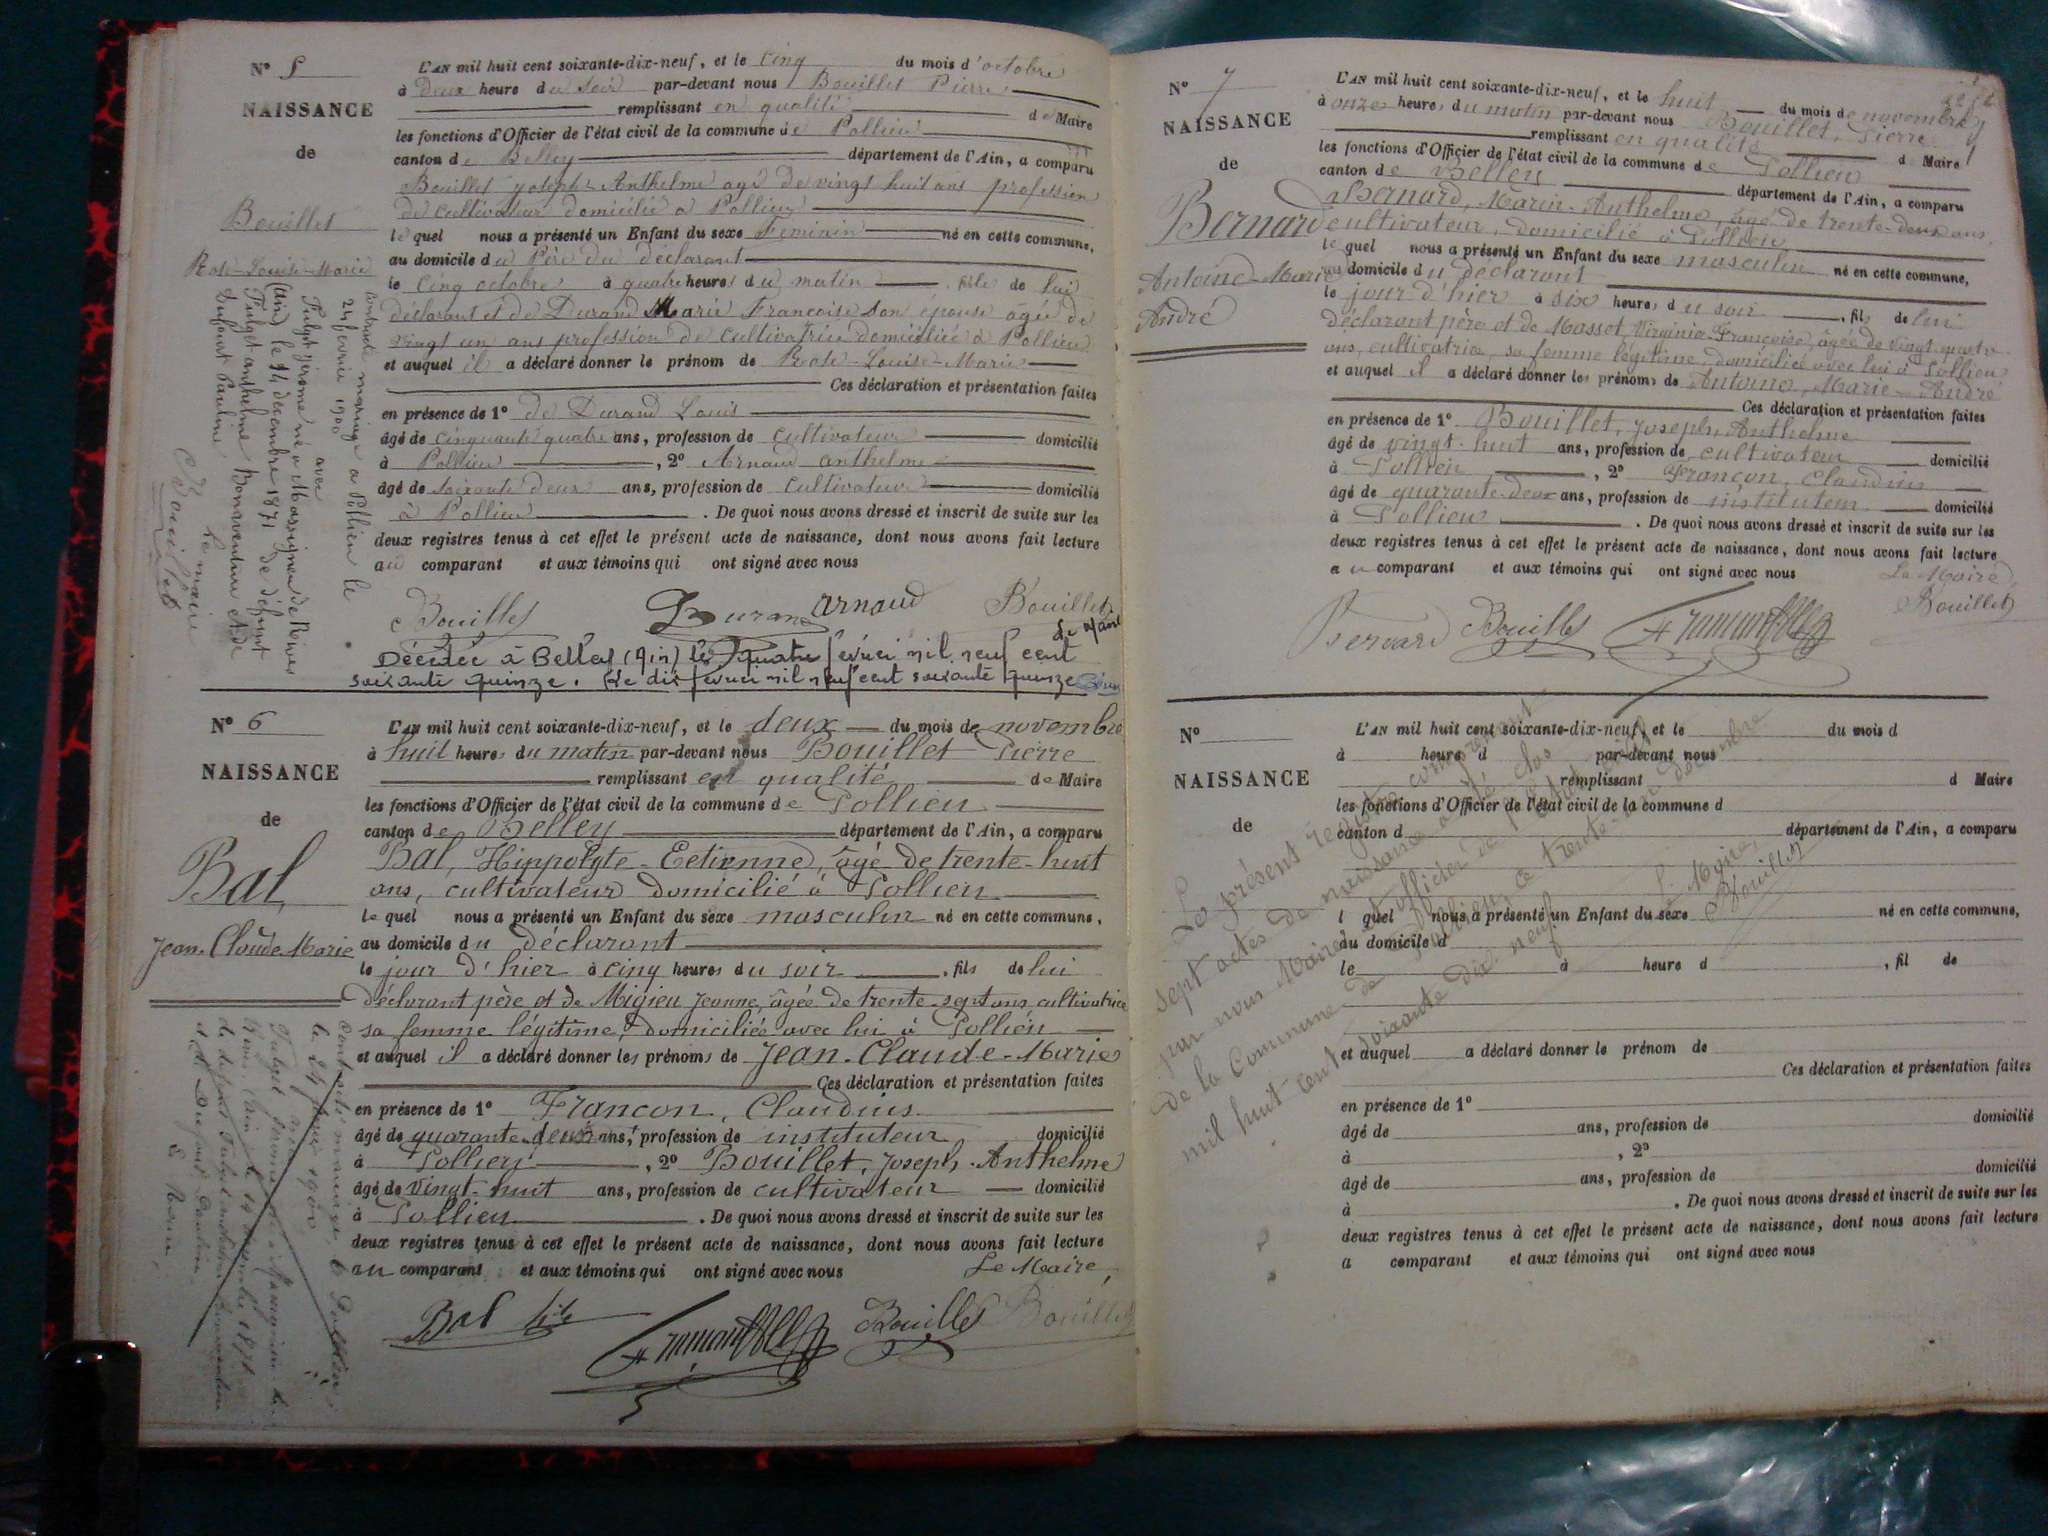 N° 5
NAISSANCE
de
Bouillet
Rose-Louise-Marie
L'AN mil huit cent soixante-dix-neuf, et le cinq du mois d'octobre
à deux heure du soir par-devant nous Bouillet Pierre
remplissant en qualité de Maire
les fonctions d'Officier de l'état civil de la commune de Pollieu
canton de Belley département de l'Ain, a comparu
Bouillet Joseph-Anthelme agé de vingt huit ans profession
de cultivateur domicilié à Pollieu
lequel nous a présenté un Enfant du sexe Feminin né en cette commune,
au domicile du Père du déclarant
le cinq octobre à quatre heures du matin fille de lui
déclarant et de Durand Marie Francoise son épouse agée de
vingt un ans profession de cultivatrice domiciliée à Pollieu
et auquel il a déclaré donner le prénom de Rose-Louise-Marie
Ces déclaration et présentation faites
en présence de 1° de Durand Louis
âgé de cinquante quatre ans, profession de cultivateur domicilié
à Pollieu, 2° Arnaud anthelme
âgé de soixante deux ans, profession de cultivateur domicilié
à Pollieu. De quoi nous avons dressé et inscrit de suite sur les
deux registres tenus à cet effet le présent acte de naissance, dont nous avons fait lecture
au comparant et aux témoins qui ont signé avec nous
Bouillet Durand Arnaud Bouillet
Le Maire
Décédée à Belley (Ain) le quatre février mil neuf cent
soixante quinze. Le dix février mil neuf cent soixante quinze
Contracté mariage à Pollieu le
24 février 1900
avec
Fulget Jérome né à Massignieu de Rives
(Ain) le 14 décembre 1871 de défunt
Fulget anthelme Bonaventure & de
Dufourt Pauline
Le maire
Bouillet
N° 6
NAISSANCE
de
Bal,
Jean-Claude Marie
L'AN mil huit cent soixante-dix-neuf, et le deux du mois de novembre
à huit heures du matin par-devant nous Bouillet Pierre
remplissant en qualité de Maire
les fonctions d'Officier de l'état civil de la commune de Pollieu
canton de Belley département de l'Ain, a comparu
Bal, Hippolyte-Etienne, âgé de trente-huit
ans, cultivateur domicilié à Pollieu
lequel nous a présenté un Enfant du sexe masculin né en cette commune,
au domicile du déclarant
le jour d'hier à cinq heures du soir, fils de lui
déclarant père et de Migieu Jeanne, âgée de trente-sept ans, cultivatrice
sa femme légitime, domiciliée avec lui à Pollieu
et auquel il a déclaré donner les prénoms de Jean-Claude-Marie
Ces déclaration et présentation faites
en présence de 1° Francon, Claudius
âgé de quarante-deux ans, profession de instituteur domicilié
à Pollieu, 2° Bouillet, Joseph-Anthelme
âgé de vingt-huit ans, profession de cultivateur domicilié
à Pollieu. De quoi nous avons dressé et inscrit de suite sur les
deux registres tenus à cet effet le présent acte de naissance, dont nous avons fait lecture
au comparant et aux témoins qui ont signé avec nous
Le Maire,
Bal Bouillet Bouillet
Contracté mariage à Pollieu
le 24 février 1900
N° 7
NAISSANCE
de
Bernard
Antoine-Marie
André
L'AN mil huit cent soixante-dix-neuf, et le huit du mois de novembre
à onze heures du matin par-devant nous Bouillet, Pierre
remplissant en qualité de Maire
les fonctions d'Officier de l'état civil de la commune de Pollieu
canton de Belley département de l'Ain, a comparu
Bernard, Marin-Anthelme, âgé de trente-deux ans,
cultivateur, domicilié à Pollieu
lequel nous a présenté un Enfant du sexe masculin né en cette commune,
au domicile du déclarant
le jour d'hier à six heures du soir, fils de lui
déclarant père et de Masset, Virginie-Françoise, âgée de vingt-quatre
ans, cultivatrice, sa femme légitime domiciliée avec lui à Pollieu
et auquel il a déclaré donner les prénoms de Antoine-Marie-André
Ces déclaration et présentation faites
en présence de 1° Bouillet, Joseph, Anthelme
âgé de vingt-huit ans, profession de cultivateur domicilié
à Pollieu, 2° Francon, Claudius
âgé de quarante-deux ans, profession de instituteur domicilié
à Pollieu. De quoi nous avons dressé et inscrit de suite sur les
deux registres tenus à cet effet le présent acte de naissance, dont nous avons fait lecture
au comparant et aux témoins qui ont signé avec nous
Le Maire,
Bernard Bouillet Bouillet
N°
NAISSANCE
de
L'AN mil huit cent soixante-dix-neuf, et le du mois d
à heure d par-devant nous
remplissant d Maire
les fonctions d'Officier de l'état civil de la commune d
canton d département de l'Ain, a comparu
l quel nous a présenté un Enfant du sexe né en cette commune,
au domicile d
le à heure d, fil de
et auquel a déclaré donner le prénom de
Ces déclaration et présentation faites
en présence de 1°
âgé de ans, profession de domicilié
à, 2°
âgé de ans, profession de domicilié
à. De quoi nous avons dressé et inscrit de suite sur les
deux registres tenus à cet effet le présent acte de naissance, dont nous avons fait lecture
a comparant et aux témoins qui ont signé avec nous
Le présent registre comprenant
sept actes de naissance a été clos
par nous Maire et officier de l'état civil
de la Commune de Pollieu, ce trente-un décembre
mil huit cent soixante dix-neuf
Le Maire,
Bouillet